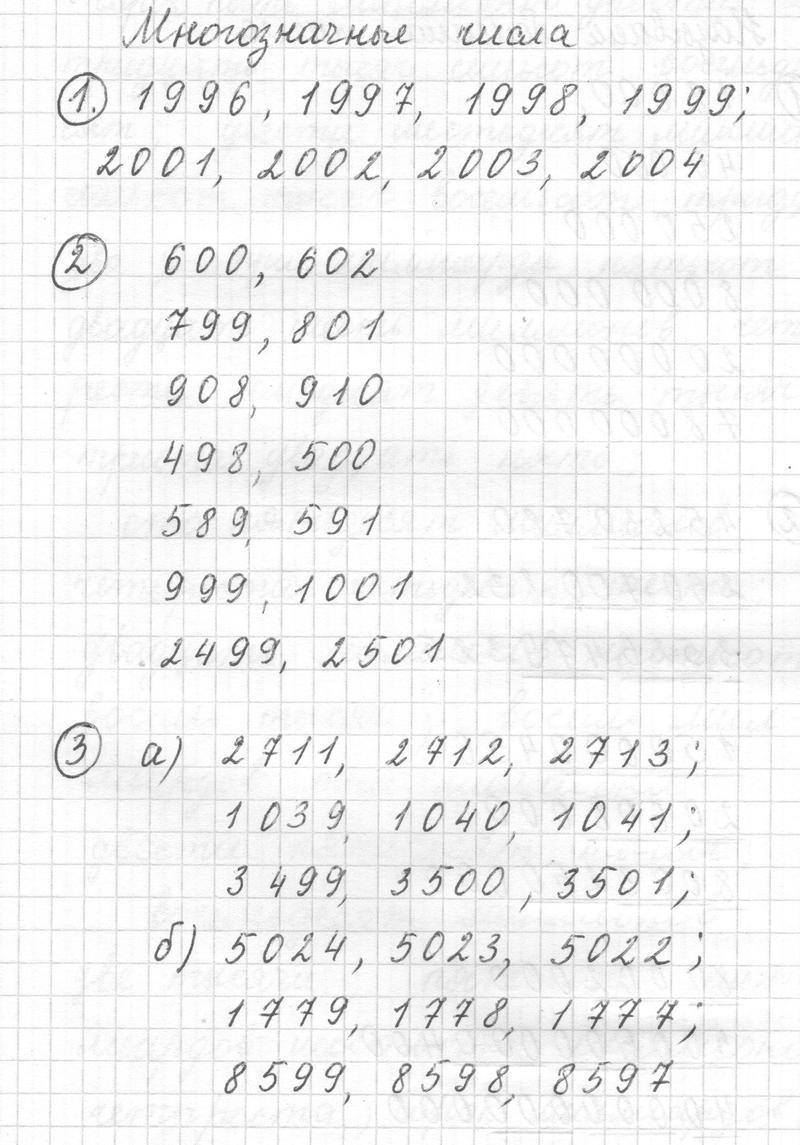 Многозначные числа
1. 1996, 1997, 1998, 1999;
2001, 2002, 2003, 2004
2 600, 602
799, 801
908, 910
498, 500
589, 591
999, 1001
2499, 2501
3 а) 2711, 2712, 2713;
1039, 1040, 1041;
3499, 3500, 3501;
б) 5024, 5023, 5022;
1779, 1778, 1777;
8599, 8598, 8597